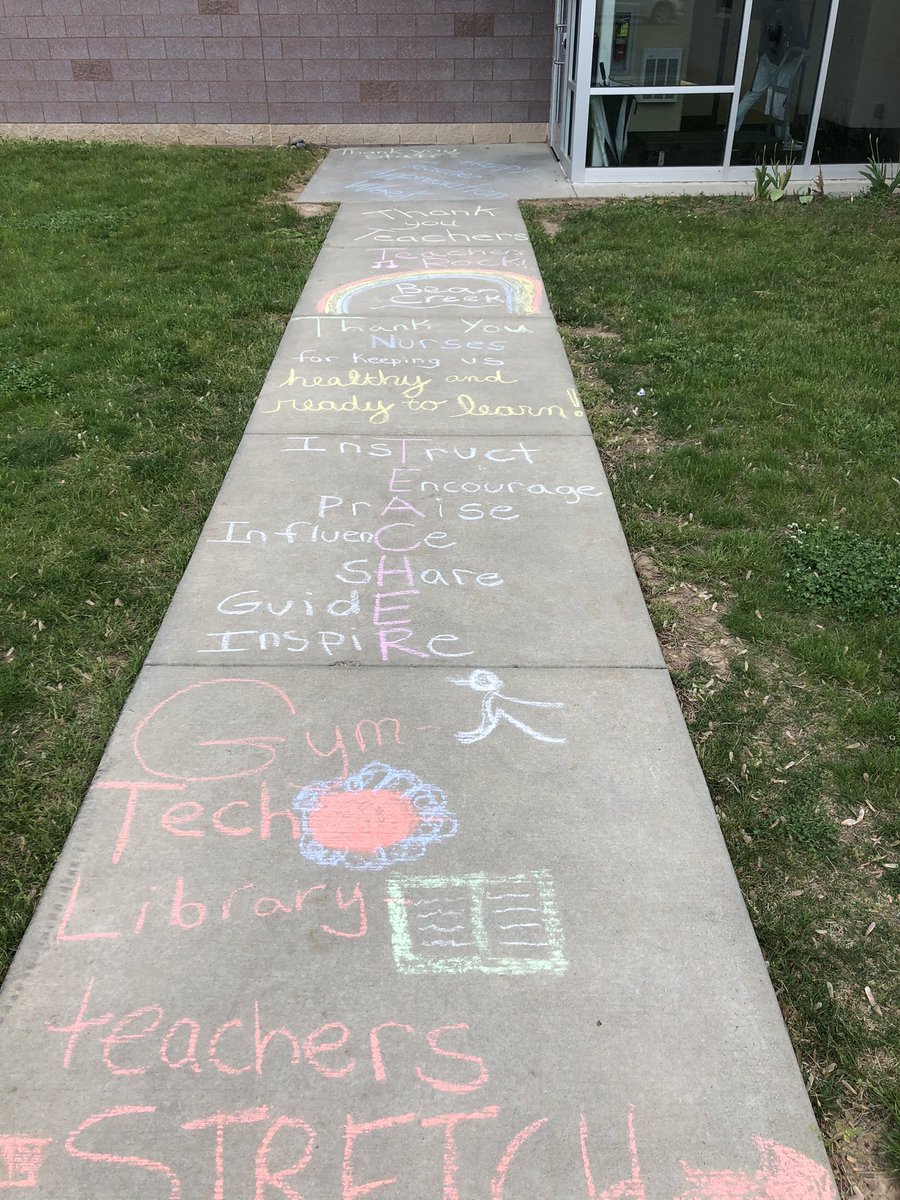 Thank you
Thank
you
Teachers
Teachers
Rock!
Bear
Creek
Thank You
Nurses
for keeping us
healthy and
ready to learn!
InsTruct
Encourage
PrAise
InfluenCe
SHare
GuidE
InspiRe
Gym-
Tech
Library
teachers
STRETCH